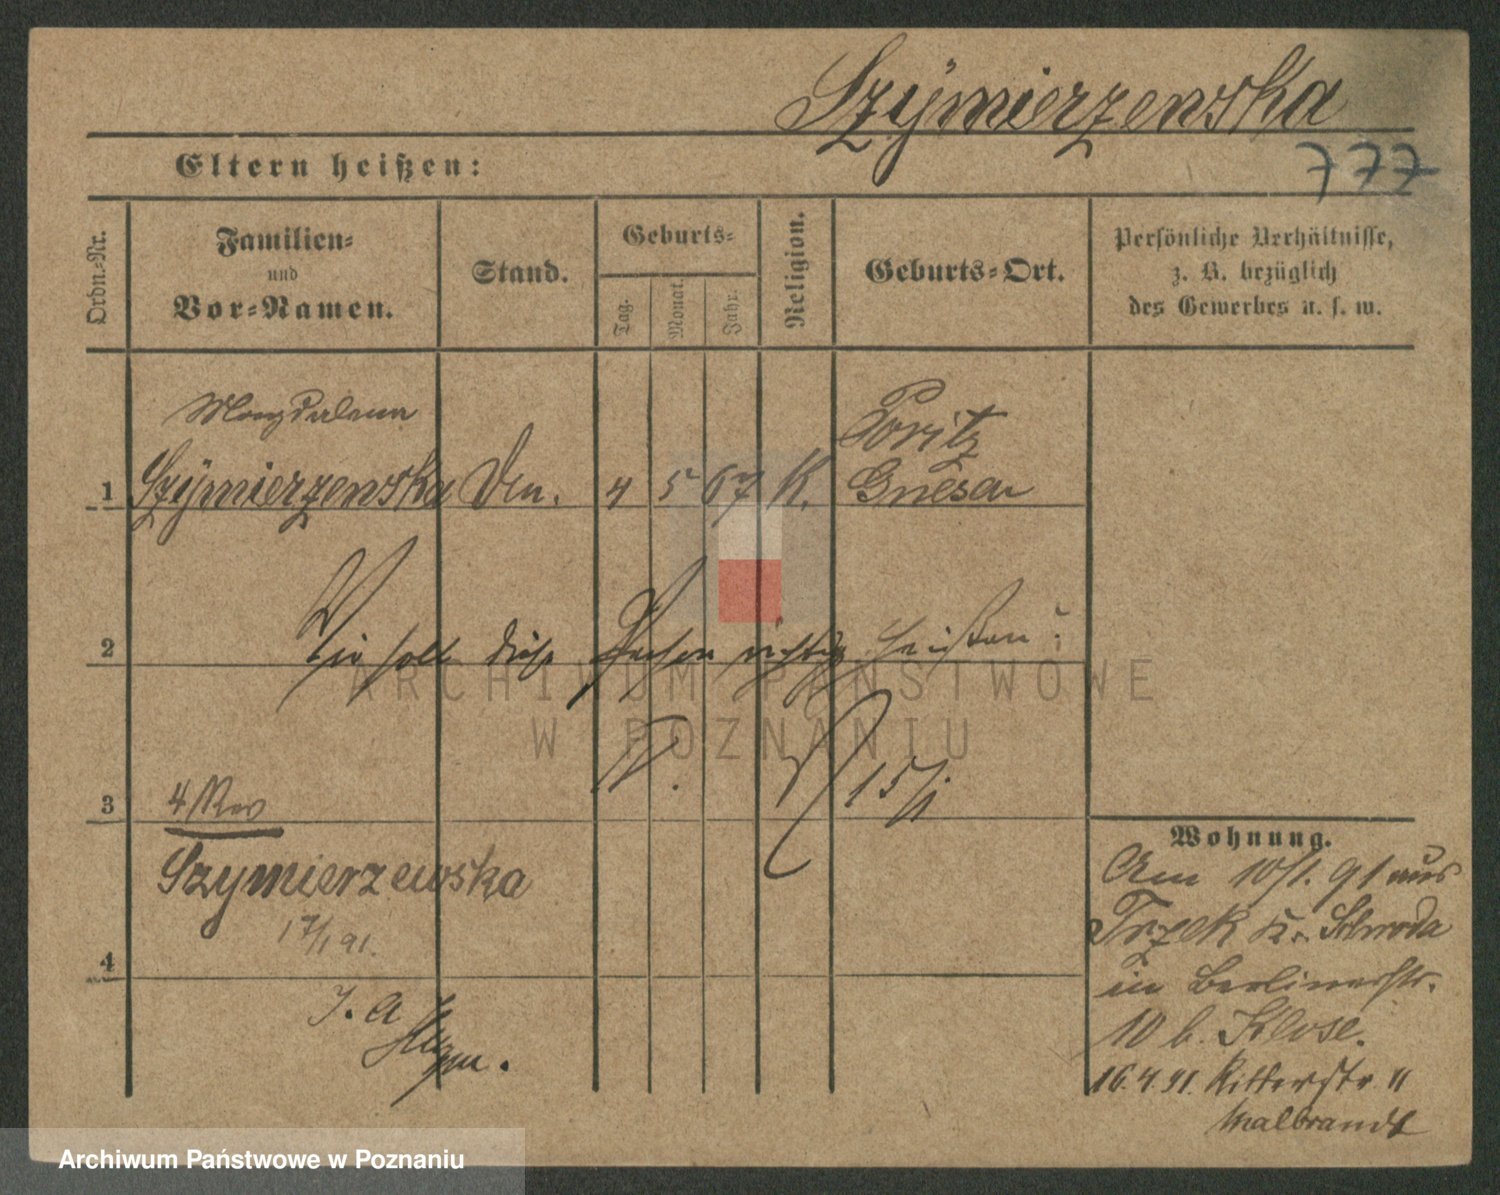 Szÿmierzewska
777
Eltern heißen:
Ordn.-Nr.
Familien-
und
Vor-Namen.
Stand.
Geburts-
Tag.
Monat.
Jahr.
Religion.
Geburts-Ort.
Persönliche Verhältnisse,
z. B. bezüglich
des Gewerbes u. s. w.
Magdalena
1 Szÿmierzewska 4 5 67 K.
Gnesen
2 Wie soll diese Person richtig heißen?
15/1
3 4 Rev
Wohnung.
Szymierzewska
17/1 91.
4
I. A
Am 10/1. 91 aus
Trzek K. Schroda
in Berlinerstr.
10 b. Klose.
16.4.91. Ritterstr. 11
Malbrandt
ARCHIWUM PAŃSTWOWE
W POZNANIU
Archiwum Państwowe w Poznaniu